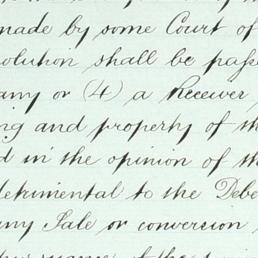 made by some Court of
solution shall be pass
any or (4) a Receiver
ng and property of th
d in the opinion of th
detrimental to the Debe
any Sale or conversion